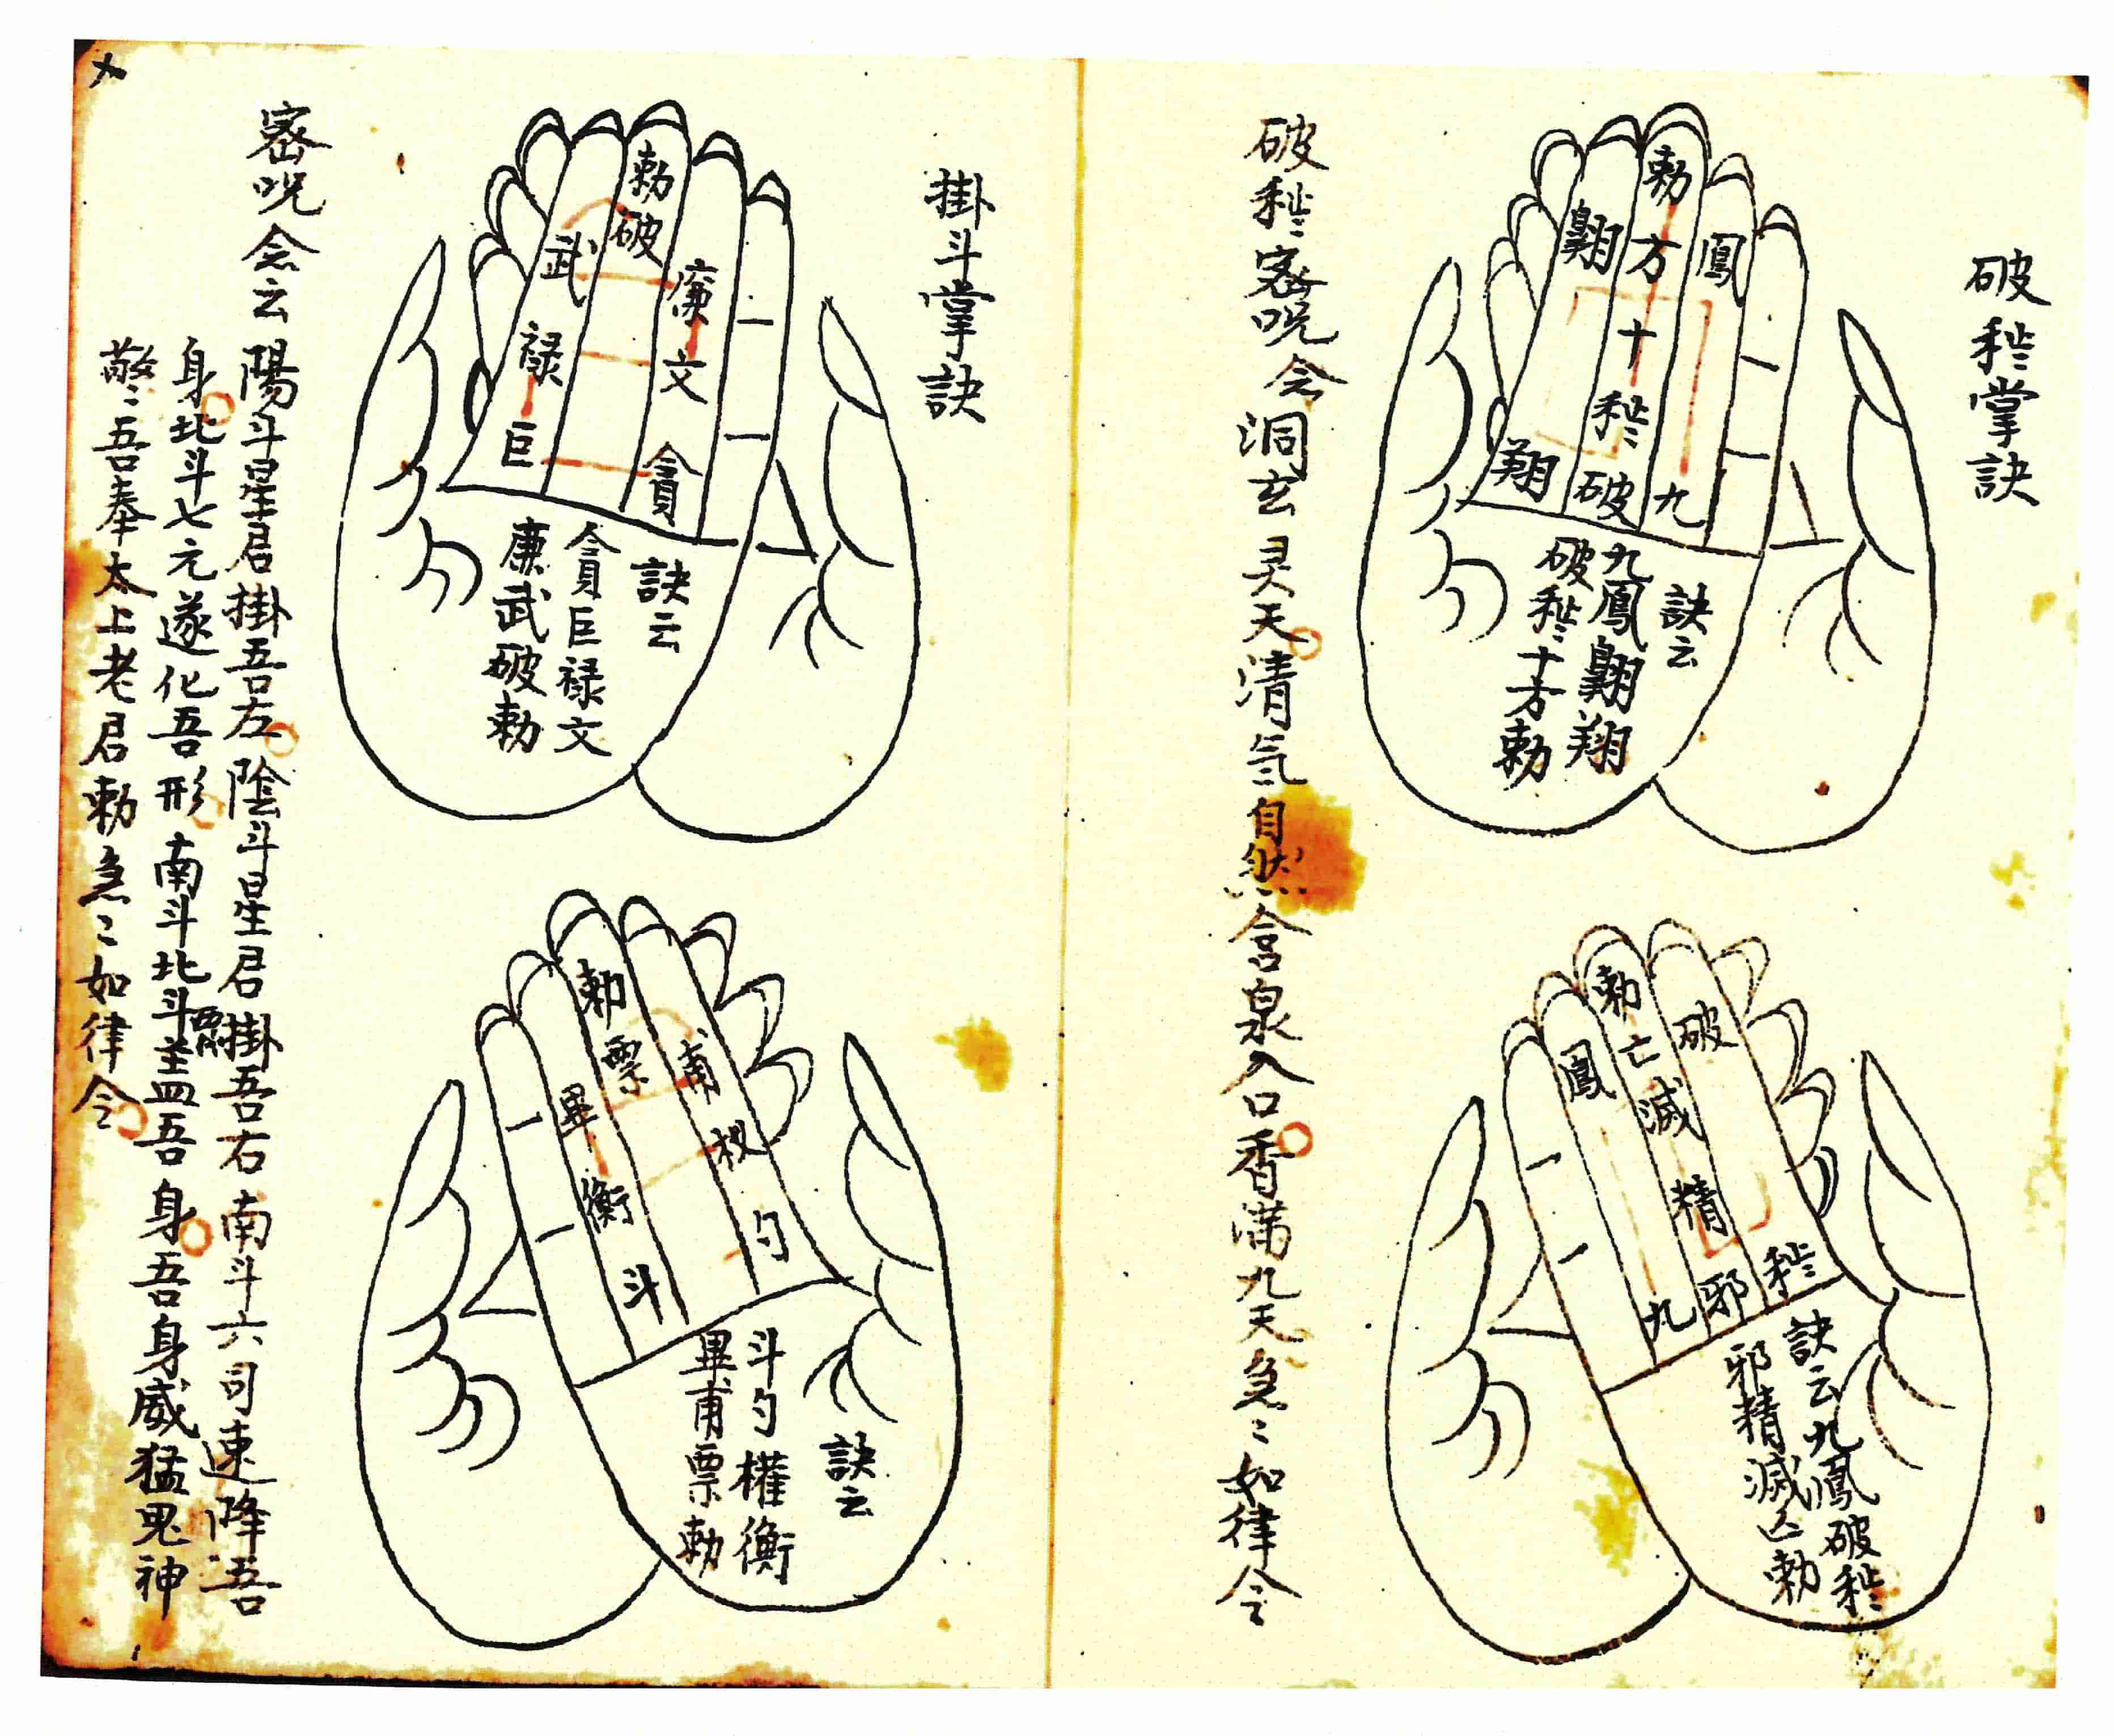 破秽掌訣
勅
鳳
方
翺
十
秽
翔
破
九
訣云
九鳳翺翔
破秽十方勅
勅
破
亡
鳳
滅
精
秽
邪
九
訣云九鳳破秽
邪精滅亡勅
破秽密呪念洞玄灵天清氣自然含泉入口香滿九天急〻如律令
掛斗掌訣
勅
破
武
廉
禄
文
巨
貪
訣云
貪巨禄文
廉武破勅
勅
票
甫
畢
权
衡
勺
斗
訣云
斗勺權衡
畢甫票勅
密呪念云陽斗星君掛吾左陰斗星君掛吾右南斗六司速降吾
身北斗七元遂化吾形南斗北斗盖吾身吾身威猛鬼神
驚〻吾奉太上老君勅急〻如律令